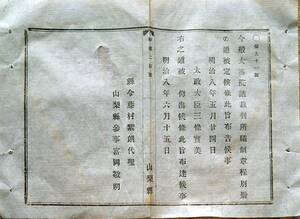 今般大審院諸裁判所職制章程別冊
之通被定候條此旨布告候事
明治八年五月廿四日
太政大臣三條實美
右之通被 仰出候條此旨布達候事
明治八年六月十五日
縣令藤村紫朗代理
山梨縣參事富岡敬明
山梨縣